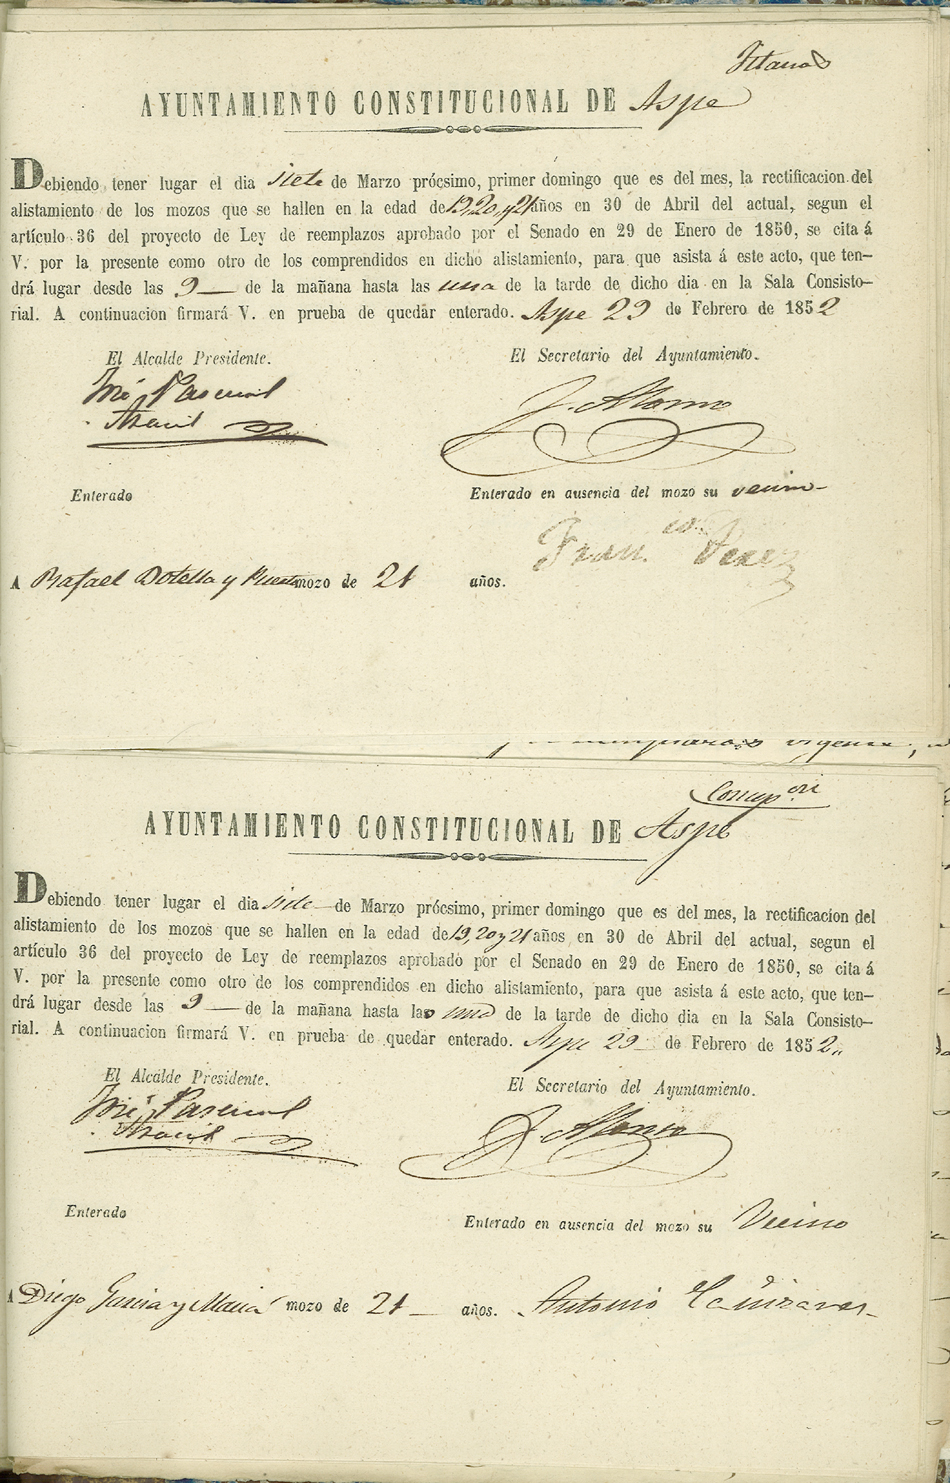 AYUNTAMIENTO CONSTITUCIONAL DE Aspe
Debiendo tener lugar el dia siete de Marzo prócsimo, primer domingo que es del mes, la rectificacion del
alistamiento de los mozos que se hallen en la edad de 19, 20, y 21 años en 30 de Abril del actual, segun el
artículo 36 del proyecto de Ley de reemplazos aprobado por el Senado en 29 de Enero de 1850, se cita á
V. por la presente como otro de los comprendidos en dicho alistamiento, para que asista á este acto, que ten-
drá lugar desde las 9 de la mañana hasta las una de la tarde de dicho dia en la Sala Consisto-
rial. A continuacion firmará V. en prueba de quedar enterado. Aspe 29 de Febrero de 1852
El Alcalde Presidente. El Secretario del Ayuntamiento.
José Pascual J. Alonso
Enterado Enterado en ausencia del mozo su vecino
Fran.co Perez
A Rafael Botella y mozo de 21 años.
AYUNTAMIENTO CONSTITUCIONAL DE Aspe
Debiendo tener lugar el dia siete de Marzo prócsimo, primer domingo que es del mes, la rectificacion del
alistamiento de los mozos que se hallen en la edad de 19, 20 y 21 años en 30 de Abril del actual, segun el
artículo 36 del proyecto de Ley de reemplazos aprobado por el Senado en 29 de Enero de 1850, se cita á
V. por la presente como otro de los comprendidos en dicho alistamiento, para que asista á este acto, que ten-
drá lugar desde las 9 de la mañana hasta las una de la tarde de dicho dia en la Sala Consisto-
rial. A continuacion firmará V. en prueba de quedar enterado. Aspe 29 de Febrero de 1852
El Alcalde Presidente. El Secretario del Ayuntamiento.
José Pascual J. Alonso
Enterado Enterado en ausencia del mozo su Vecino
A Diego Garcia y mozo de 21 años. Antonio Cañizares